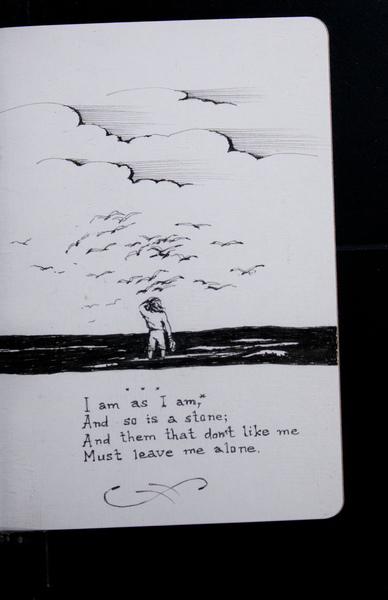 * * *
I am as I am,*
And so is a stone;
And them that don't like me
Must leave me alone.